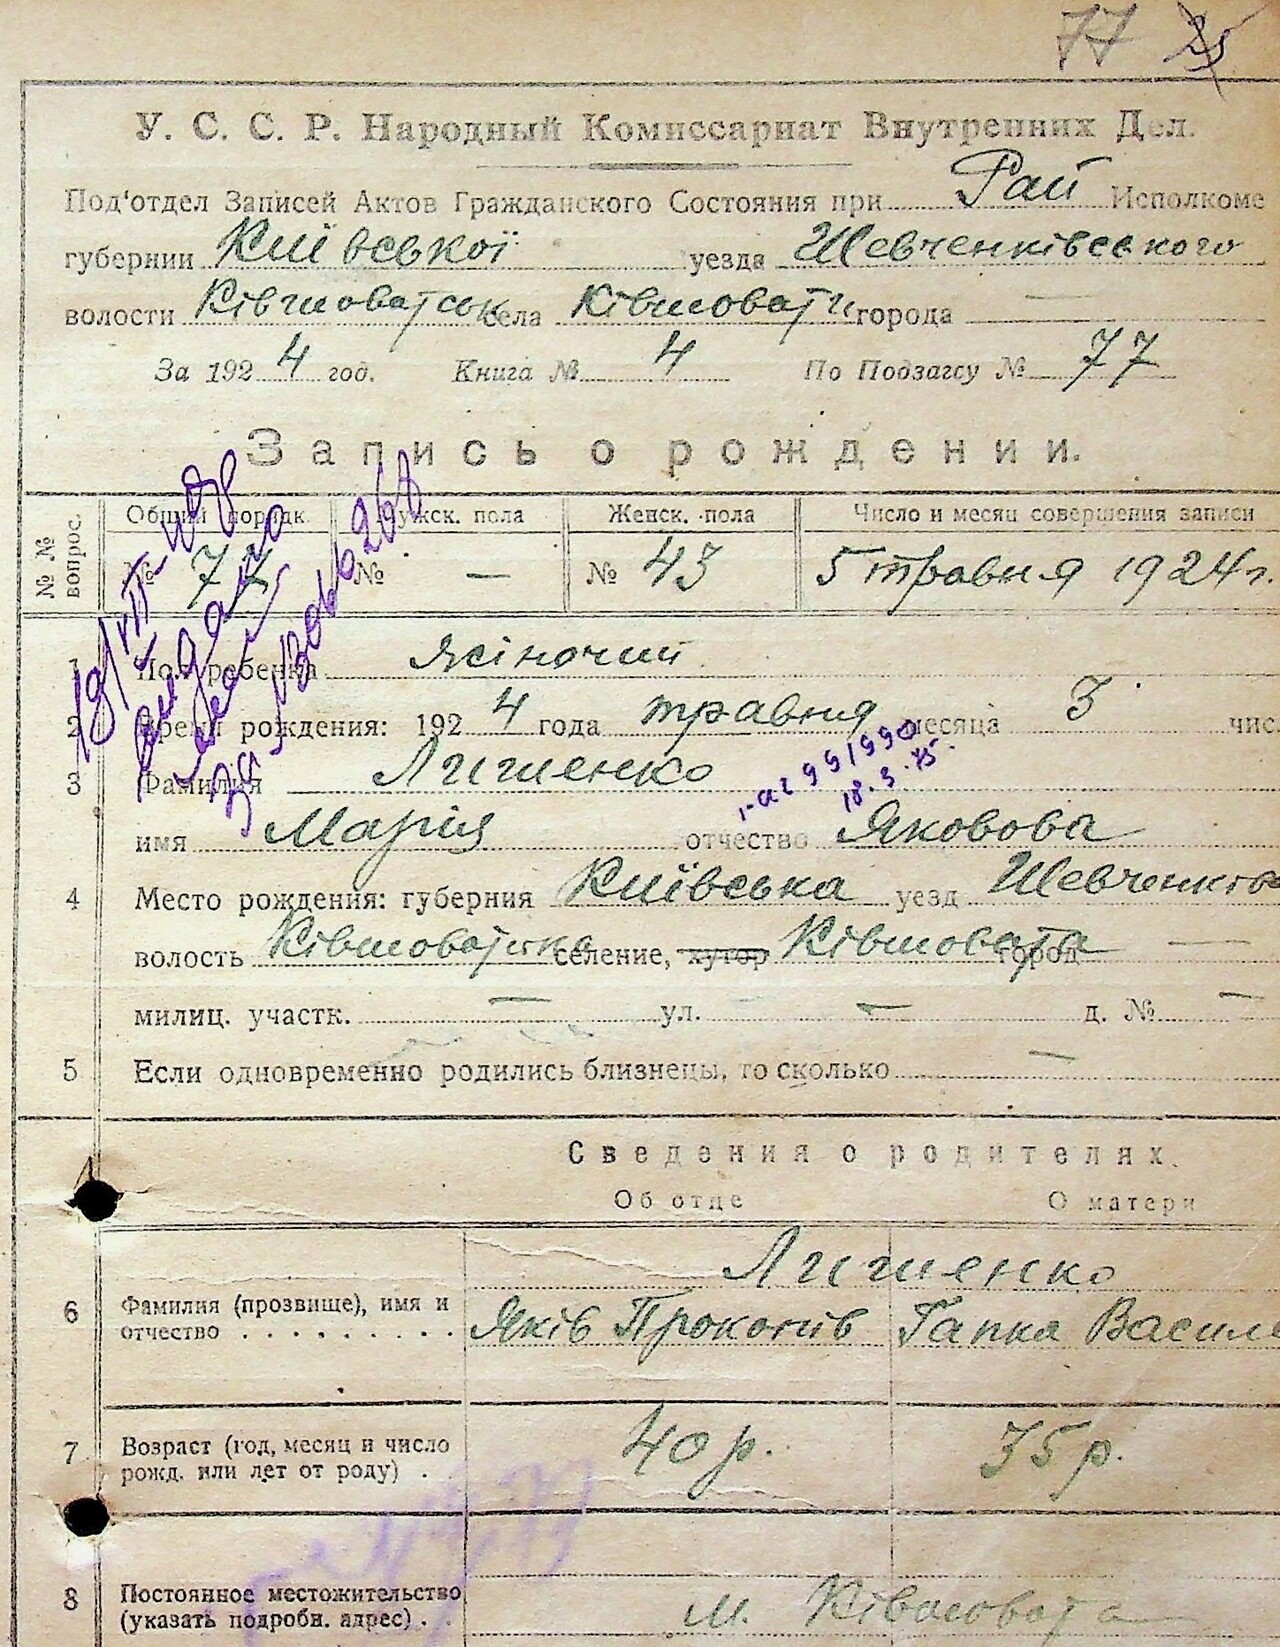 77 25
У. С. С. Р. Народный Комиссариат Внутренних Дел.
Под'отдел Записей Актов Гражданского Состояния при Рай Исполкоме
губернии Київської уезда Шевченківського
волости Ківшоватськ села Ківшовати города —
За 1924 год. Книга № 4 По Подзагсу № 77
Запись о рождении.
№ № вопрос. Общий порядк. Мужск. пола Женск. пола Число и месяц совершения записи
№ 77 № — № 43 5 травня 1924 г.
1 Пол ребенка жіночий
2 Время рождения: 1924 года травня месяца 3 чис
3 Фамилия Лишенко
18.3.75.
имя Марія отчество Яковова
4 Место рождения: губерния Київська уезд Шевченків
волость Ківшоватська селение, хутор Ківшовата город —
милиц. участк. — ул. — д. № —
5 Если одновременно родились близнецы, то сколько —
Сведения о родителях.
Об отце О матери
Лишенко
6 Фамилия (прозвище), имя и
отчество Яків Прокопів Гапка Василе
7 Возраст (год, месяц и число
рожд. или лет от роду) 40 р. 35 р.
8 Постоянное местожительство
(указать подробн. адрес) м. Ківшовата